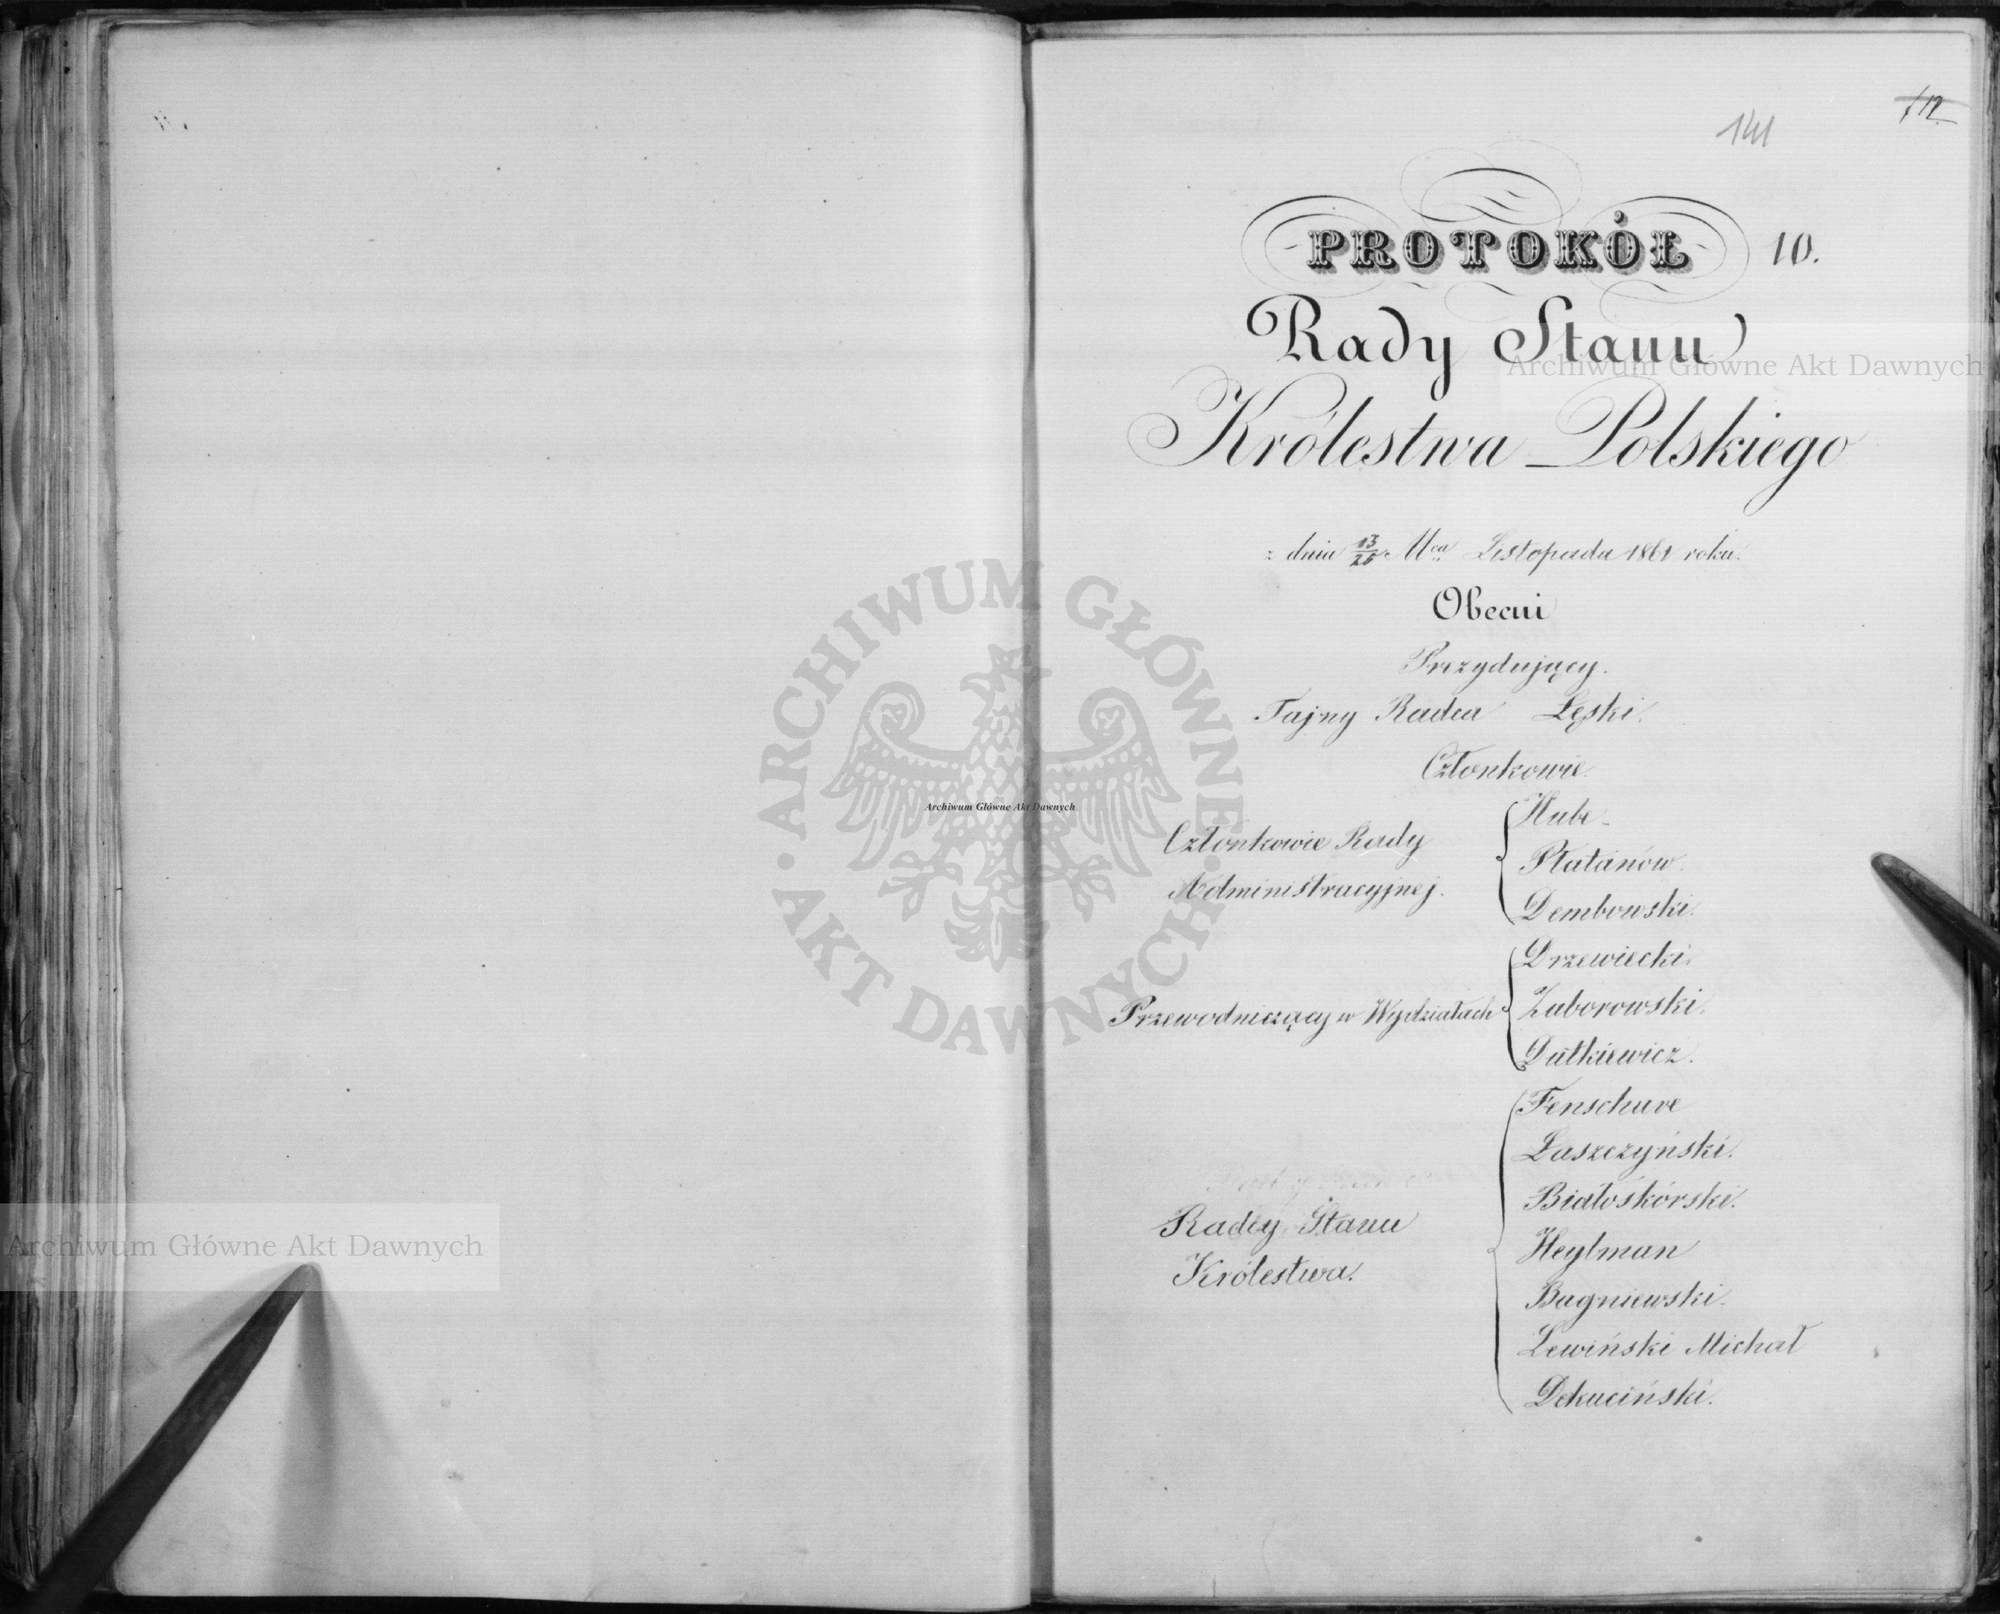 141
112
PROTOKÓŁ 10.
Rady Stanu
Archiwum Główne Akt Dawnych
Królestwa Polskiego
z dnia 13/25 Mca Listopada 1861 roku.
Obecni
Prezydujący.
Tajny Radca Łęski.
Członkowie.
Członkowie Rady
Administracyjnej.
Hube
Płatanów.
Dembowski.
Przewodniczący w Wydziałach
Drzewiecki.
Zaborowski.
Dutkiewicz.
Radcy Stanu
Królestwa.
Fenschave
Łaszczyński.
Białoskórski.
Heylman
Bagniewski.
Lewiński Michał
Dekuciński.
ARCHIWUM GŁÓWNE · AKT DAWNYCH ·
Archiwum Główne Akt Dawnych
Archiwum Główne Akt Dawnych